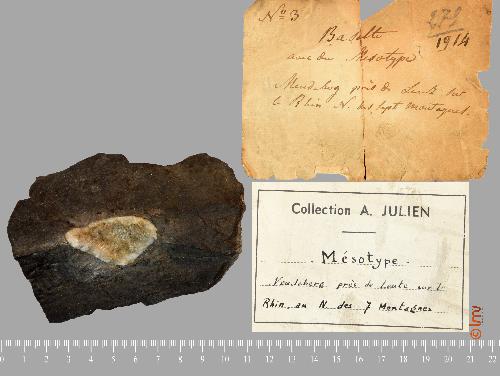 No 3
271
1914
Basalte
avec du Mésotype
près de sur
le Rhin N. des sept montagnes.
Collection A. JULIEN
Mésotype
près de sur le
Rhin au N des 7 Montagnes
© lmv
0 1 2 3 4 5 6 7 8 9 10 11 12 13 14 15 16 17 18 19 20 21 22